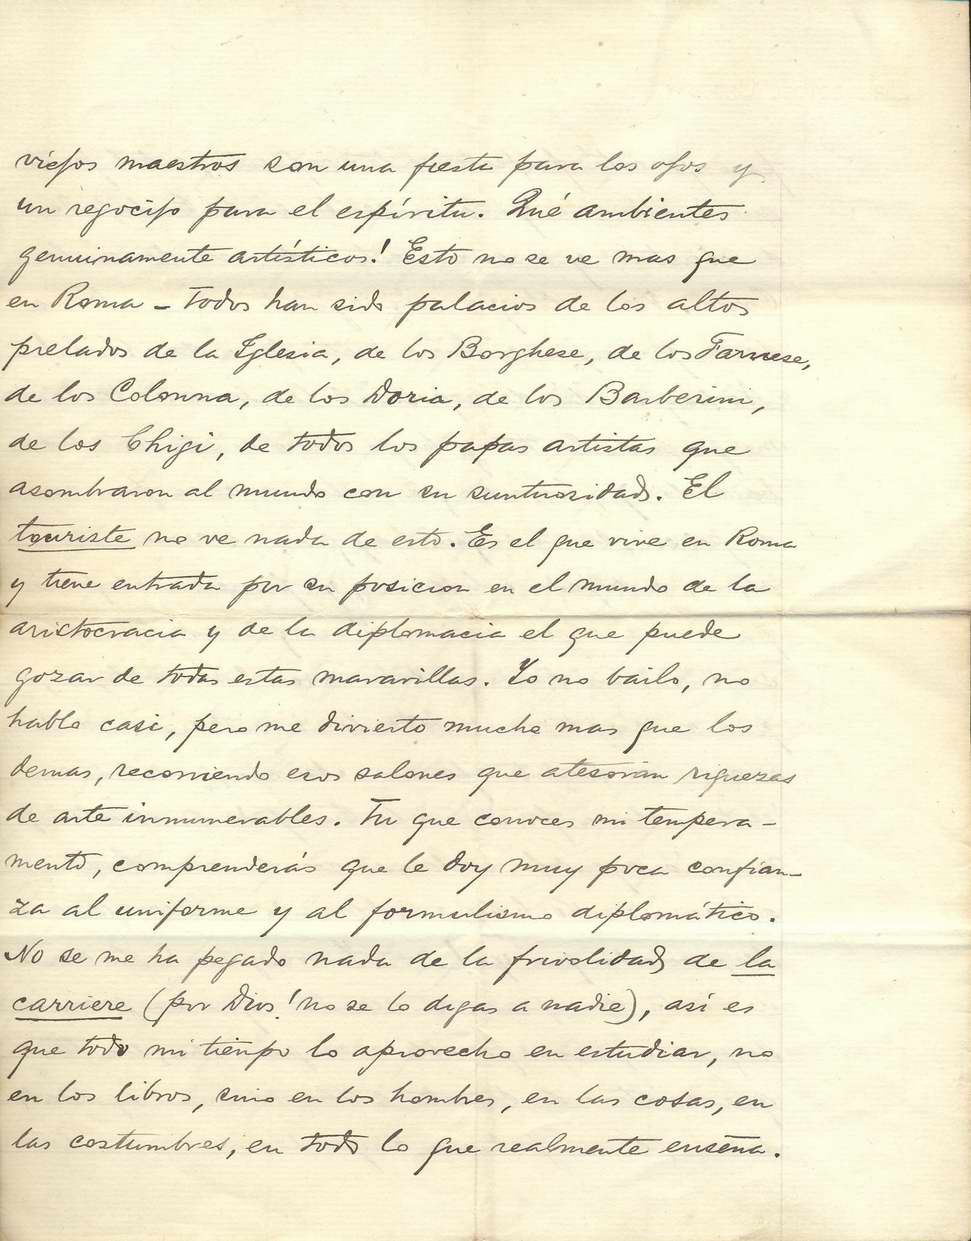 viejos maestros son una fiesta para los ojos y
un regocijo para el espíritu. Qué ambientes
genuinamente artísticos! Esto no se ve mas que
en Roma - Todos han sido palacios de los altos
prelados de la Iglesia, de los Borghese, de los Farnese,
de los Colonna, de los Doria, de los Barberini,
de los Chigi, de todos los papas artistas que
asombraron al mundo con su suntuosidad. El
touriste no ve nada de esto. Es el que vive en Roma
y tiene entrada por su posicion en el mundo de la
aristocracia y de la diplomacia el que puede
gozar de todas estas maravillas. Yo no bailo, no
hablo casi, pero me divierto mucho mas que los
demas, recorriendo esos salones que atesoran riquezas
de arte innumerables. Tu que conoces mi tempera-
mento, comprenderás que le doy muy poca confian-
za al uniforme y al formulismo diplomático.
No se me ha pegado nada de la frivolidad de la
carriere (por Dios! no se lo digas a nadie), así es
que todo mi tiempo lo aprovecho en estudiar, no
en los libros, sino en los hombres, en las cosas, en
las costumbres, en todo lo que realmente enseña.